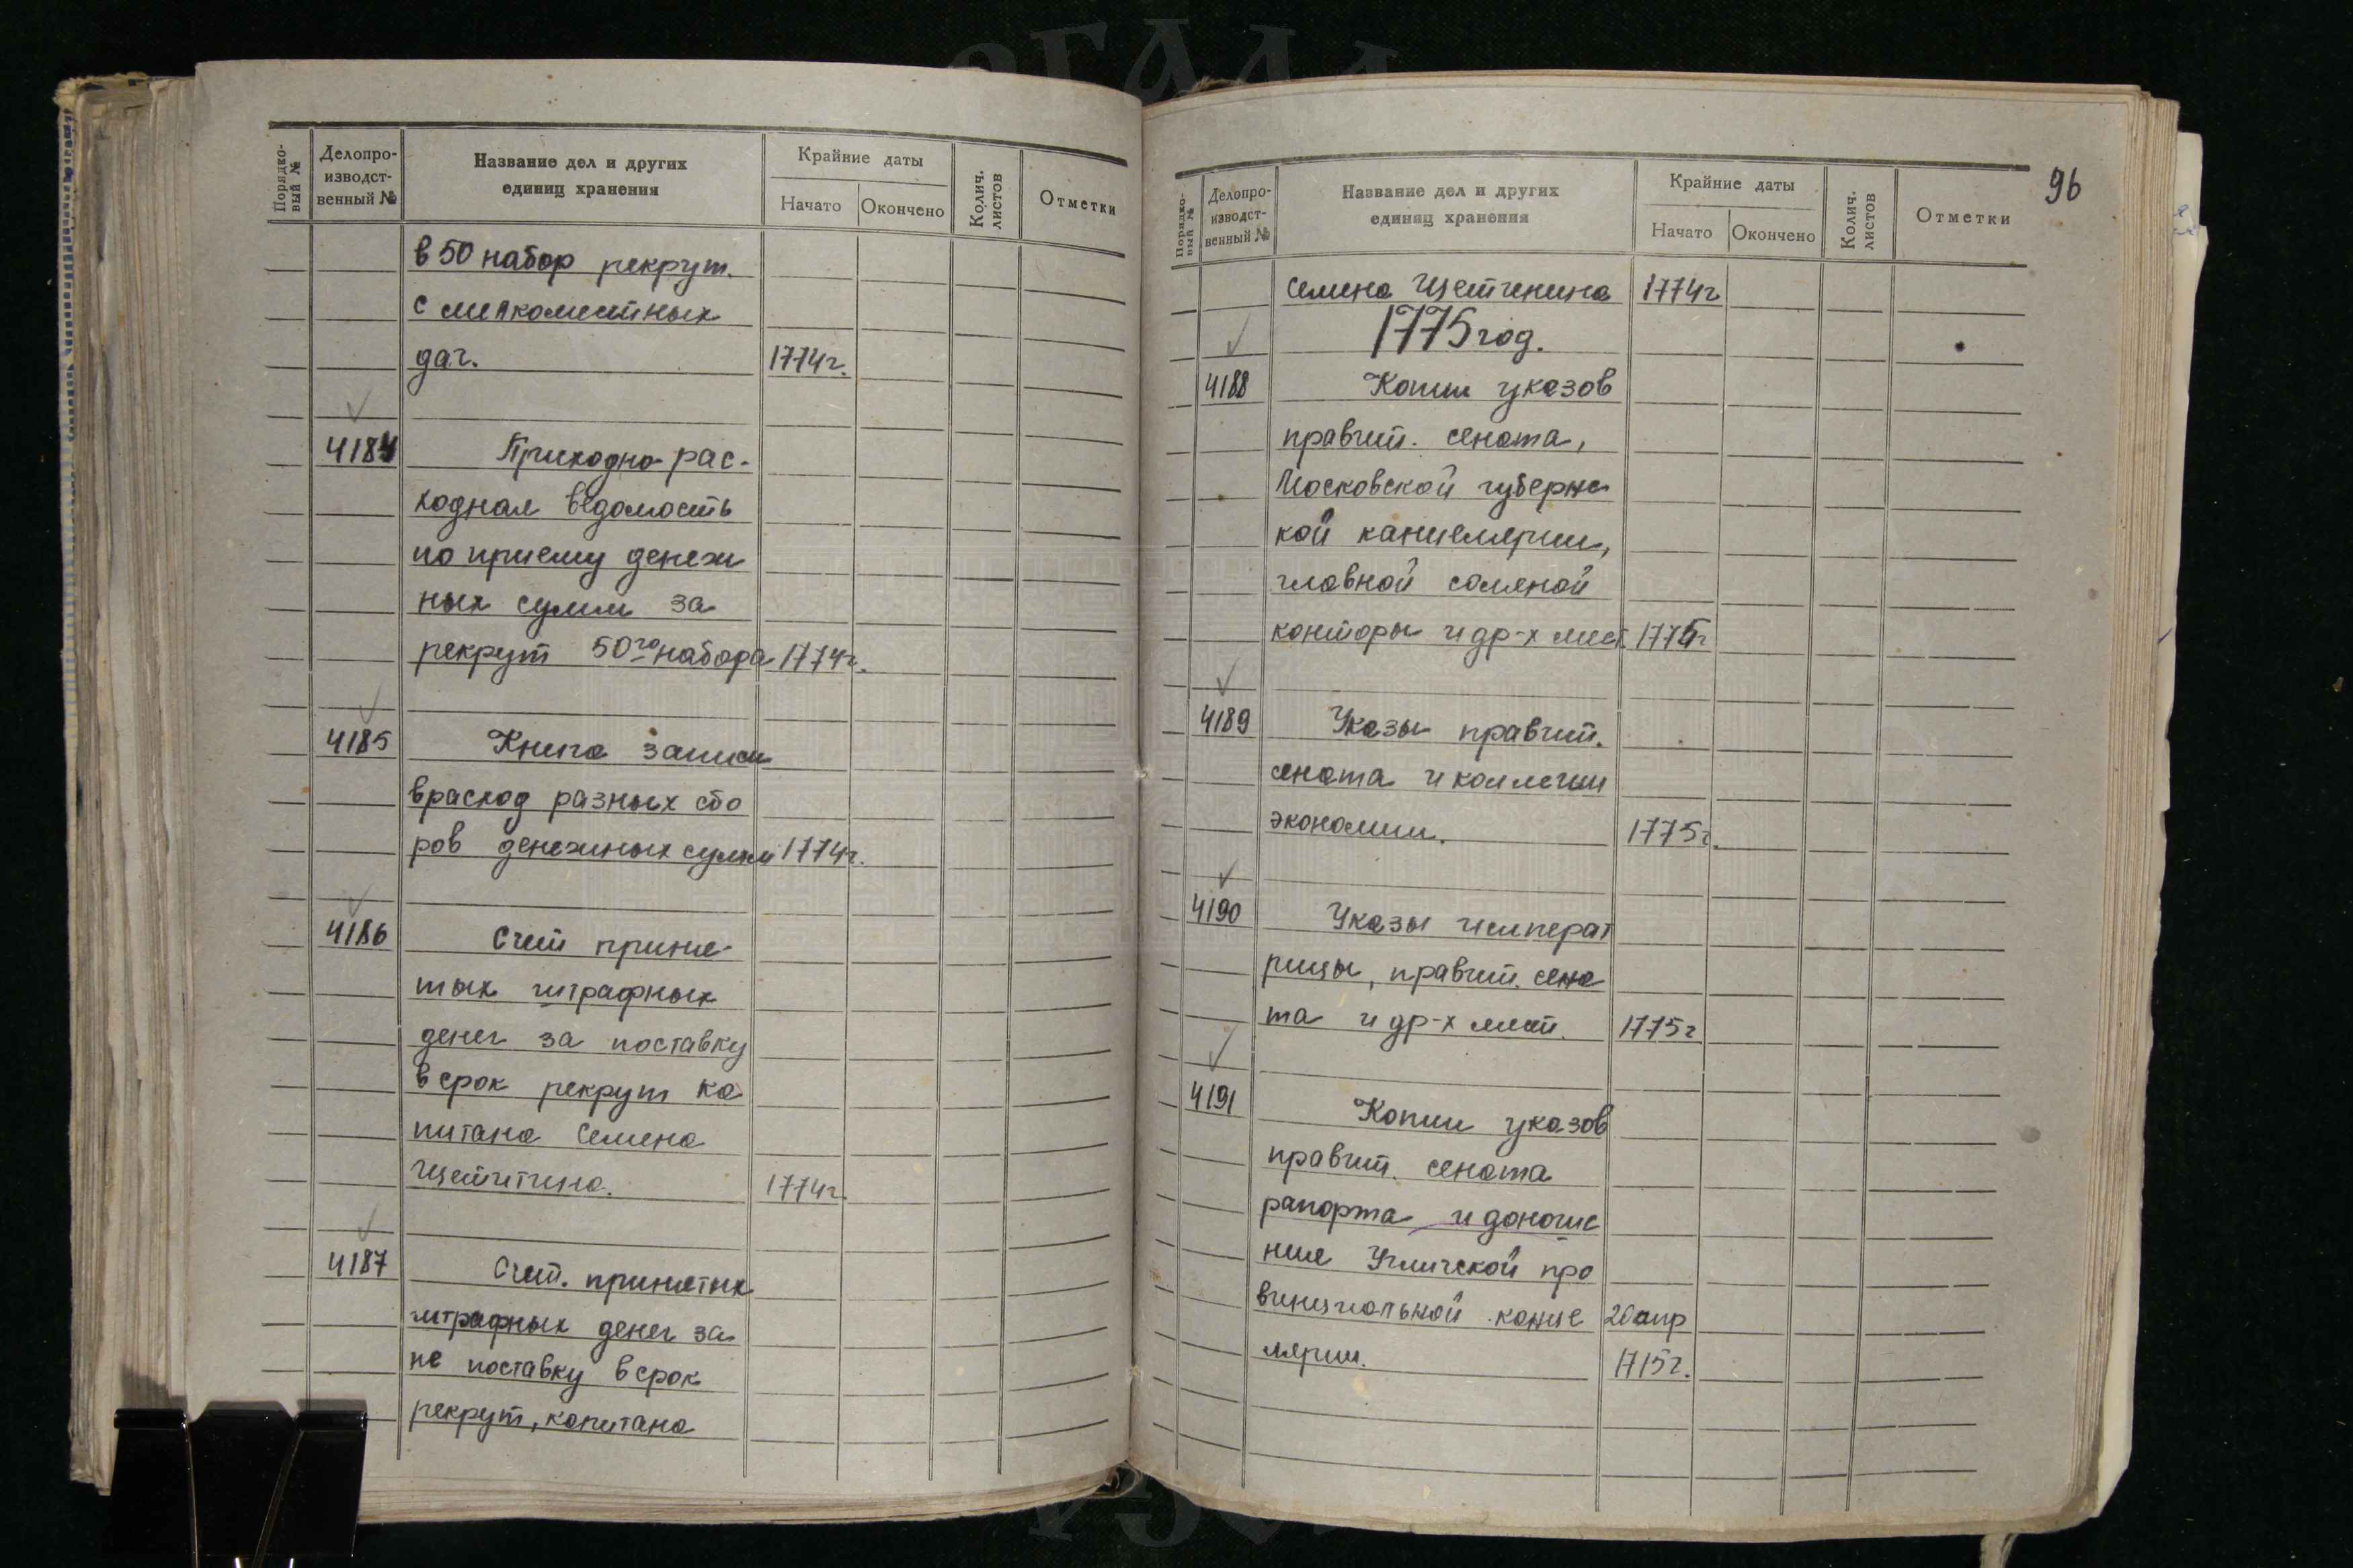 Порядко-
вый №
Делопро-
изводст-
венный №
Название дел и других
единиц хранения
Крайние даты
Начато
Окончено
Колич.
листов
Отметки
в 50 набор рекрут.
с мелкоместных
дач. 1774г.
4184 Приходно-рас-
ходная ведомость
по приему денеж
ных сумм за
рекрут 50го набора 1774г.
4185 Книга записи
в расход разных сбо
ров денежных сумм 1774г.
4186 Счет приня-
тых штрафных
денег за поставку
в срок рекрут ка
питана Семена
1774г.
4187 Счет. принятых
штрафных денег за
не поставку в срок
рекрут, капитана
96
Порядко-
вый №
Делопро-
изводст-
венный №
Название дел и других
единиц хранения
Крайние даты
Начато
Окончено
Колич.
листов
Отметки
Семена Щетинина 1774г
1775 год.
4188 Копии указов
правит. сената,
Московской губернс
кой канцелярии,
главной соляной
конторы и др-х мест 1775г
4189 Указы правит.
сената и коллегии
экономии. 1775г.
4190 Указы императ
рицы, правит. сена
та и др-х мест. 1775г
4191 Копии указов
правит. сената
рапорта и доноше
ние Угличской про
винциальной канце 26 апр
лярии. 1775г.